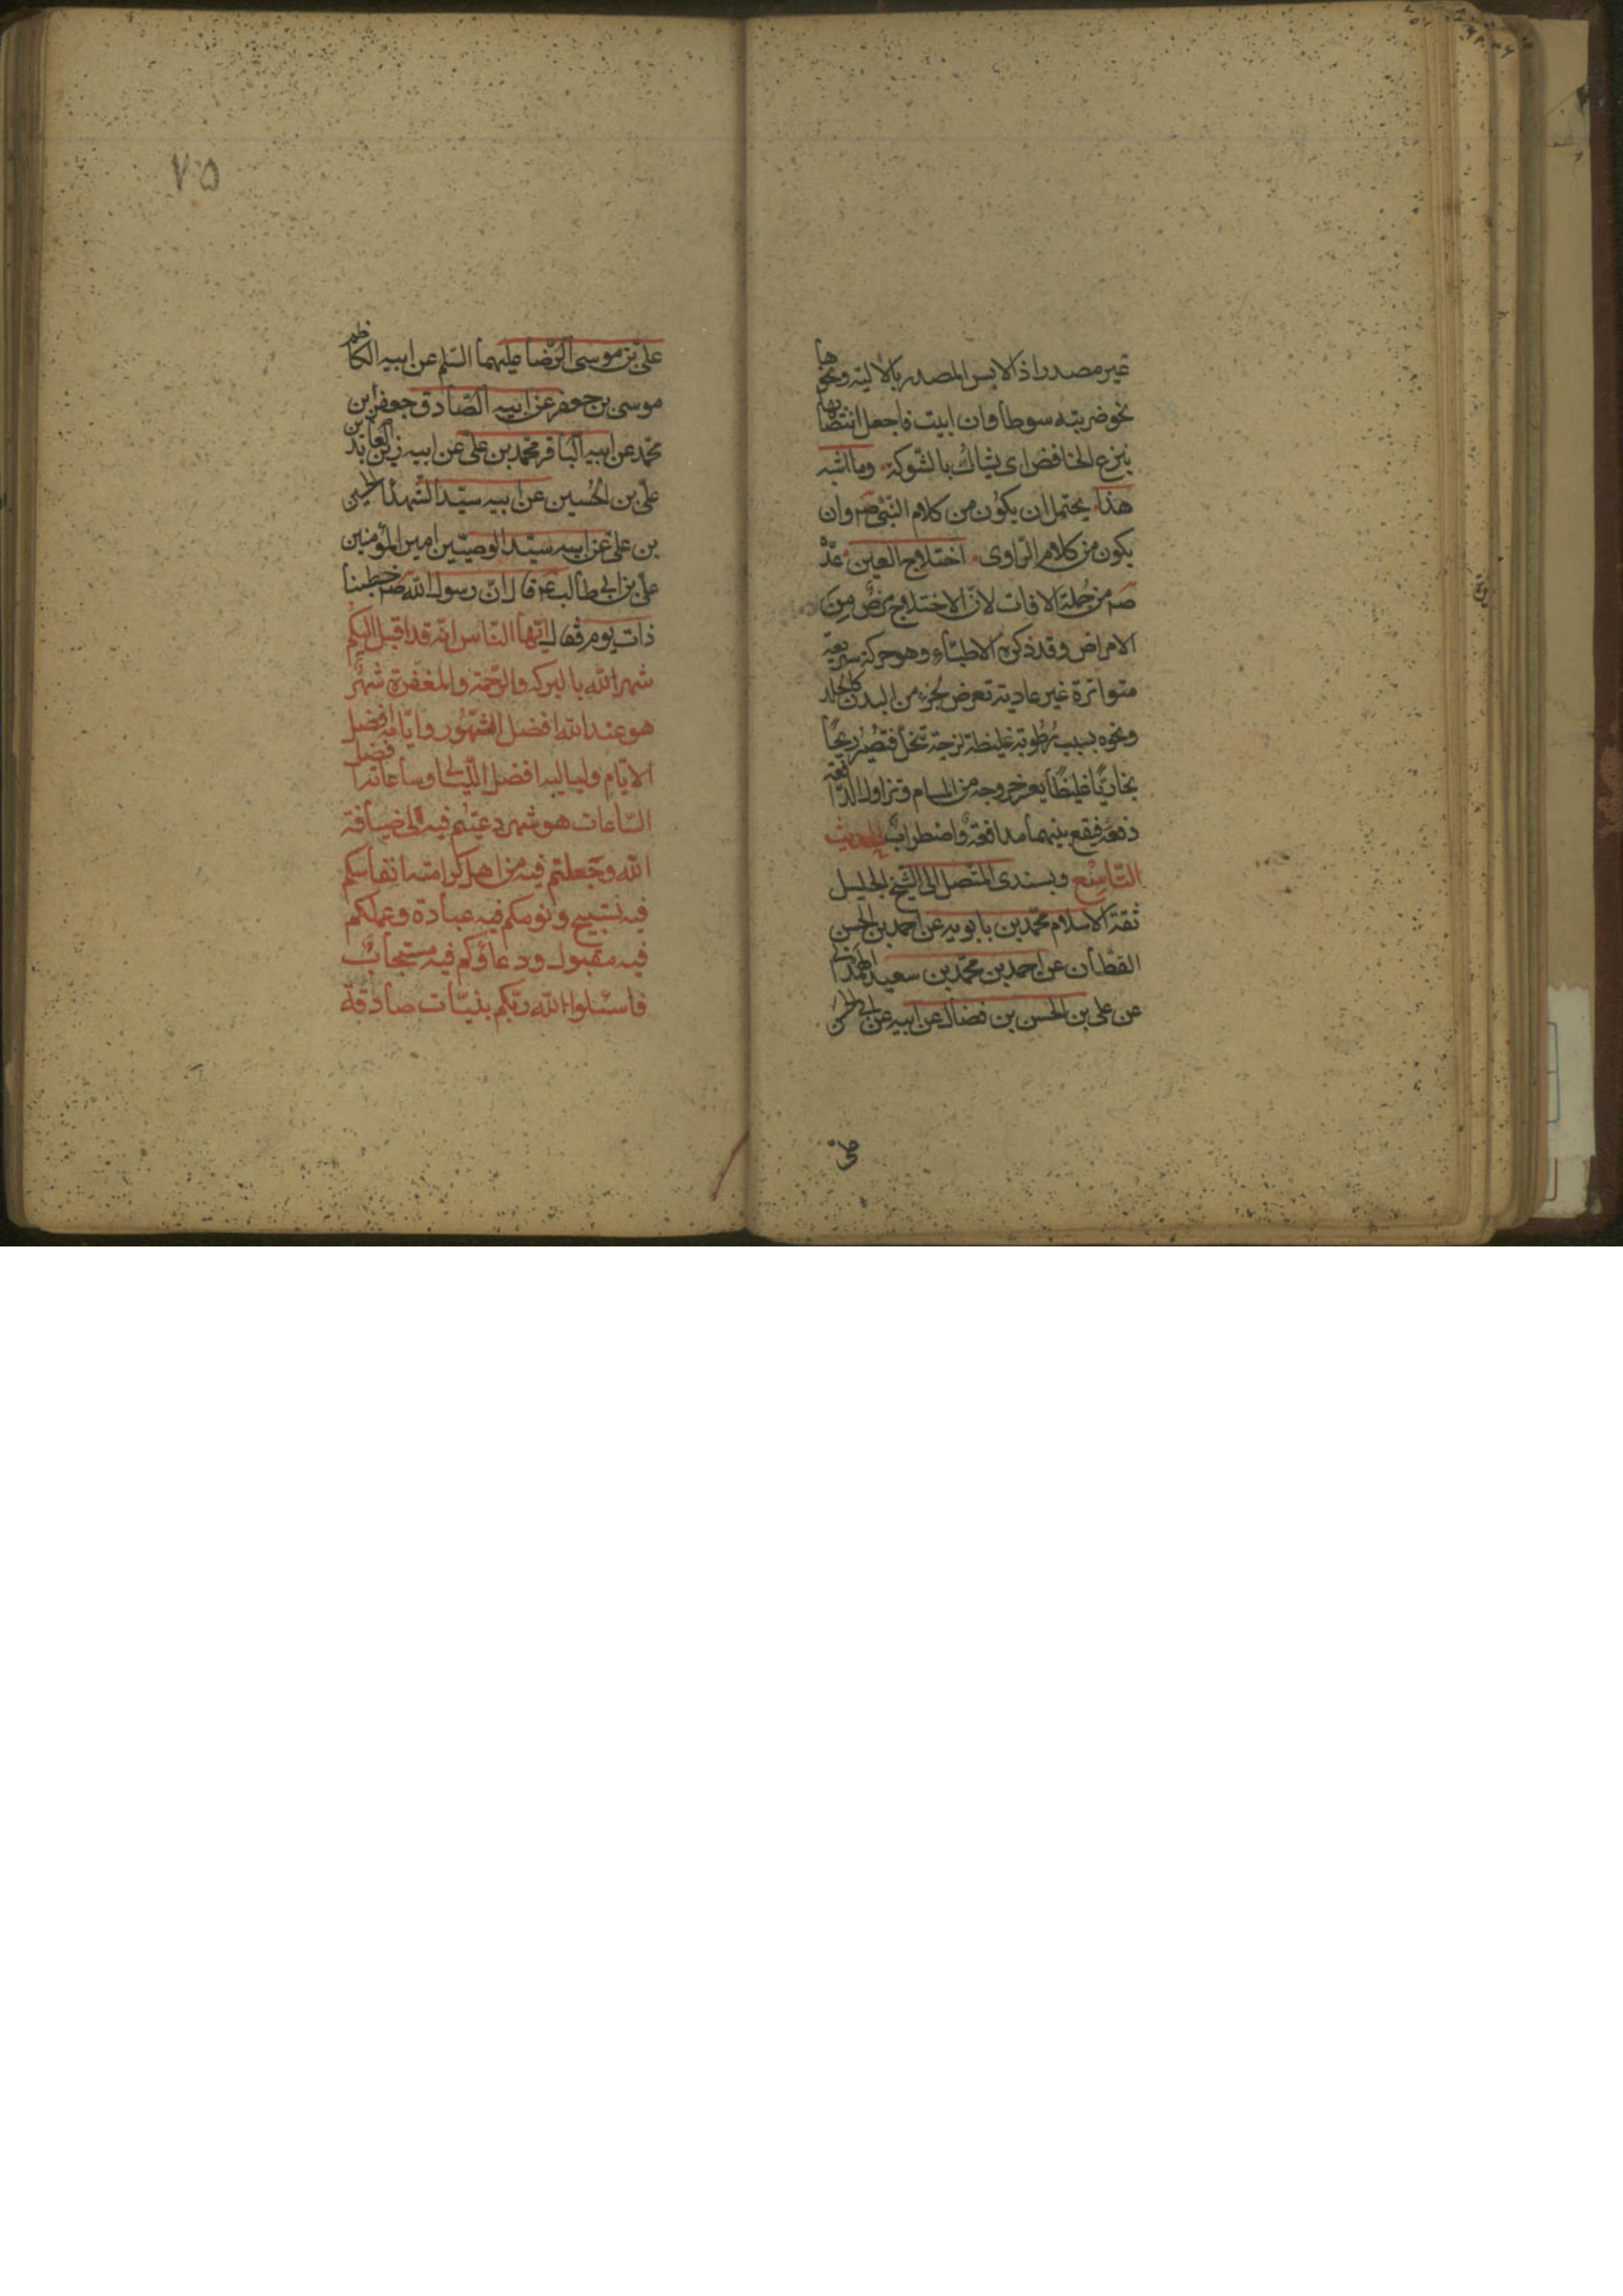 غير مصدر اذ لا يس المصدر بالالية ونحوها
نحو ضربته سوطا وان ابيت فاجعل انتصابهما
بنزع الخافض اى يشاك بالشوكة وما اشبه
هذا يحتمل ان يكون من كلام النبى صم وان
يكون من كلام الراوى اختلاج العين عدّه
صم من جملة الافات لانّ الاختلاج مرض من
الامراض وقد ذكره الاطباء وهو حركة سريعة
متواترة غير عادية تعرض لجزء من البدن كالجلد
ونحوه بسبب رطوبة غليظة لزجة تنحل فتصير ريحًا
بخاريًا غليظًا يعسر خروجه من المسام وتزاول الدافعة
دفعه فيقع بينهما مدافعة واضطراب الحديث
التاسع وبسندى المتصل الى الشيخ الجليل
ثقة الاسلام محمد بن بابويه عن احمد بن الحسن
القطان عن احمد بن محمد بن سعيد الهمدانى
عن على بن الحسن بن فضال عن ابيه عن ابى الحسن
على
٧٥
علىّ بن موسى الرّضا عليهما السّلم عن ابيه الكاظم
موسى بن جعفر عن ابيه الصّادق جعفر بن
محمّد عن ابيه الباقر محمد بن على عن ابيه زين العابدين
علىّ بن الحسين عن ابيه سيّد الشهدا الحسين
بن علىّ عن ابيه سيّد الوصيّين امير المؤمنين
علىّ بن ابى طالب عم قال انّ رسول الله صم خطبنا
ذات يوم فقال ايّها النّاس انّه قد اقبل اليكم
شهر الله بالبركه والرّحمة والمغفرة شهر
هو عند الله افضل الشّهور وايّامه افضل
الايّام ولياليه افضل اللّيالى وساعاته افضل
السّاعات هو شهر دعيتم فيه الى ضيافة
الله وجعلتم فيه من اهل كرامته انفاسكم
فيه تسبيح ونومكم فيه عبادة وعملكم
فيه مقبول ودعاؤكم فيه مستجاب
فاسئلوا الله ربّكم بنيّات صادقة